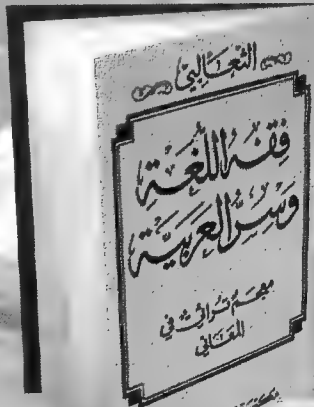 الثعالبي
فقه اللغة
وسر العربية
معجم تراثي في
المعاني